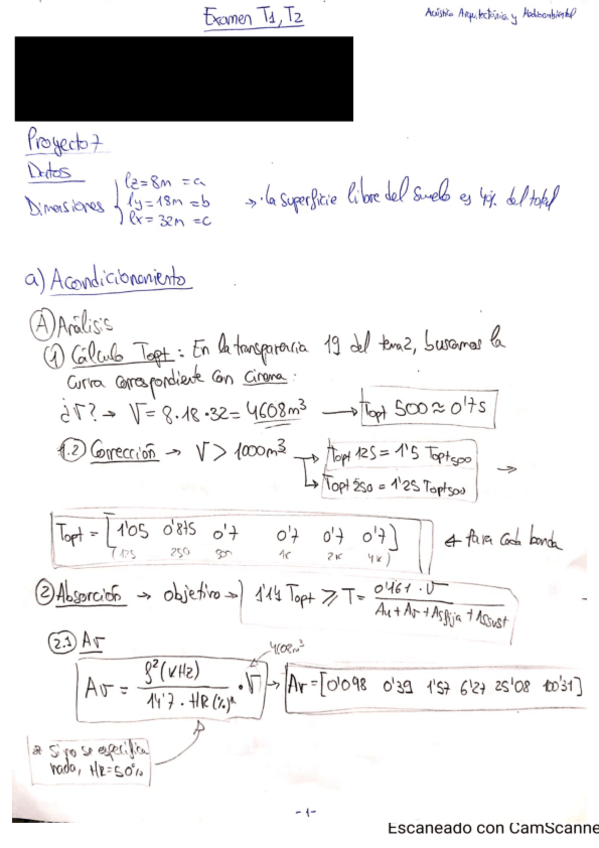 Examen T1, T2
Acústica Arquitectónica y Medioambiental
Proyecto 7
Datos
Dimensiones { lz = 8m = a
ly = 18m = b
lx = 32m = c
→ · la superficie libre del suelo es 4% del total
a) Acondicionamiento
Ⓐ Análisis
① Cálculo Topt: En la transparencia 19 del tema2, buscamos la
curva correspondiente con Cinema:
¿V? → V = 8·18·32 = 4608m³ → Topt 500 ≈ 0'7s
1.2 Corrección → V > 1000m³ → Topt 125 = 1'5 Topt500
Topt 250 = 1'25 Topt500
Topt = [1'05 0'875 0'7 0'7 0'7 0'7] ← para cada banda
(125 250 500 1k 2k 4k)
② Absorción → objetivo → 1'14 Topt ≥ T = 0'161 · V / Au + Av + Asfija + Asust
2.1 Av
4608m³
Av = f²(kHz) / 14'7 · HR(%)* · V → Av = [0'098 0'39 1'57 6'27 25'08 100'31]
* Si no se especifica
nada, HR = 50%
-1-
Escaneado con CamScanne